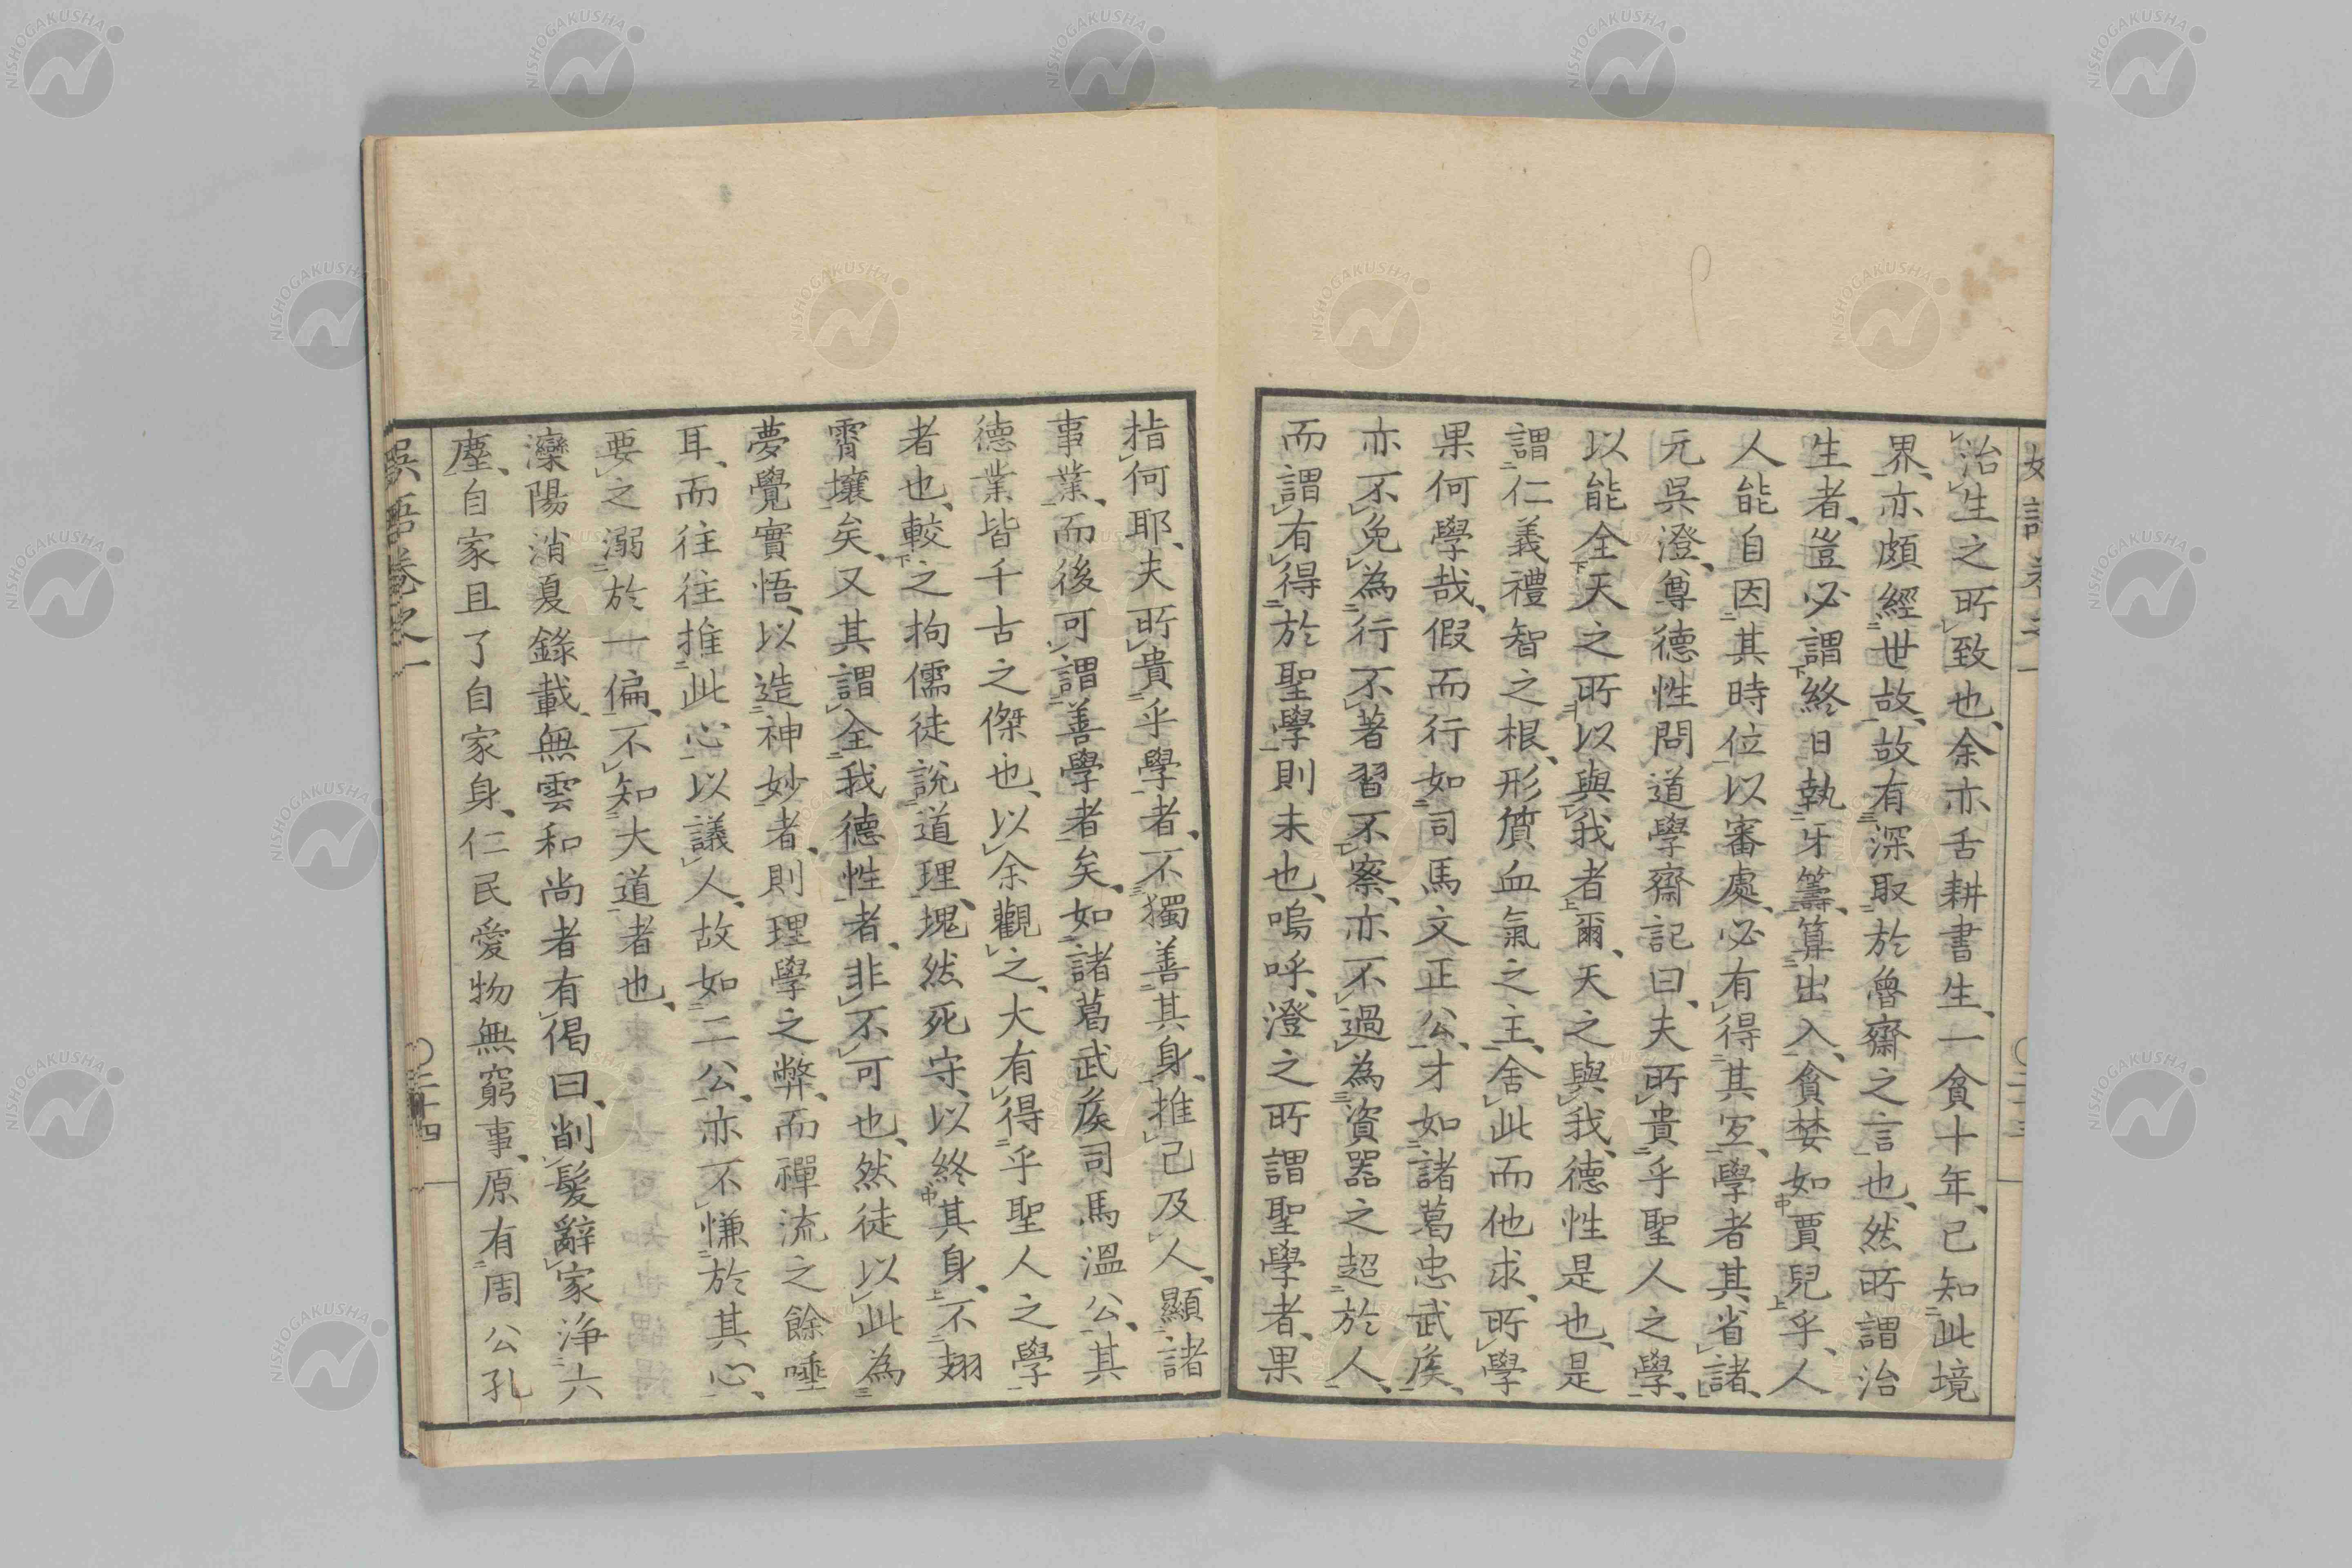 治生之所致也、余亦舌耕書生、一貧十年、已知此境
界、亦頗經世故、故有深取於魯齋之言也、然所謂治
生者、豈必謂終日執牙籌、算出入、貪婪如賈兒乎、人
人能自因其時位以審處、必有得其宜、學者其省諸、
元吳澄、尊德性問道學齋記曰、夫所貴乎聖人之學、
以能全天之所以與我者爾、天之與我、德性是也、是
謂仁義禮智之根、形質血氣之主、舍此而他求、所學
果何學哉、假而行如司馬文正公、才如諸葛忠武侯、
亦不免為行不著習不察、亦不過為資器之超於人、
而謂有得於聖學則未也、嗚呼、澄之所謂聖學者、果
指何耶、夫所貴乎學者、不獨善其身、推己及人、顯諸
事業、而後可謂善學者矣、如諸葛武侯司馬溫公、其
德業皆千古之傑也、以余觀之、大有得乎聖人之學
者也、較之拘儒徒說道理、塊然死守、以終其身、不翅
霄壤矣、又其謂全我德性者、非不可也、然徒以此為
夢覺實悟、以造神妙者、則理學之弊、而禪流之餘唾
耳、而往往推此心以議人、故如二公、亦不慊於其心、
要之溺於一偏、不知大道者也、
灤陽消夏錄載、無雲和尚者有偈曰、削髮辭家淨六
塵、自家且了自家身、仁民愛物無窮事、原有周公孔
娛語卷之一
〇二十四
〇二十三